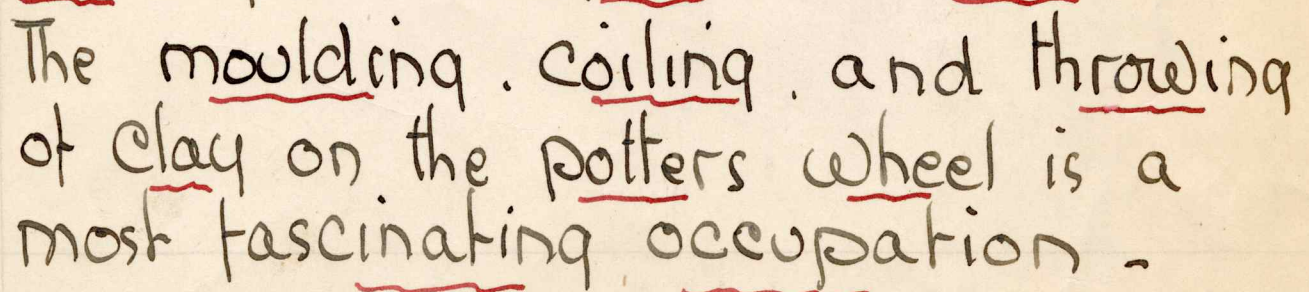 The moulding . coiling . and throwing
of clay on the potters wheel is a
most fascinating occupation -